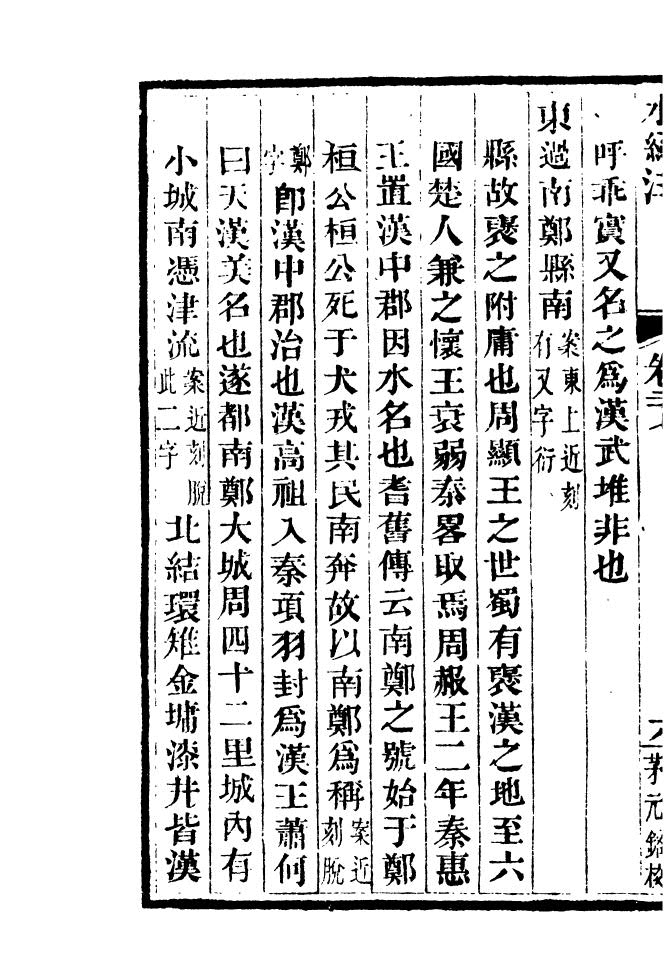 水經注 卷二十七 茅元銘校
呼乖實又名之爲漢武堆非也
東過南鄭縣南案東上近刻有又字衍
縣故褒之附庸也周顯王之世蜀有褒漢之地至六
國楚人兼之懷王衰弱秦畧取焉周赧王二年秦惠
王置漢中郡因水名也耆舊傳云南鄭之號始于鄭
桓公桓公死于犬戎其民南奔故以南鄭爲稱案近刻脫
鄭字卽漢中郡治也漢高祖入秦項羽封爲漢王蕭何
曰天漢美名也遂都南鄭大城周四十二里城內有
小城南憑津流案近刻脫此二字北結環雉金墉漆井皆漢